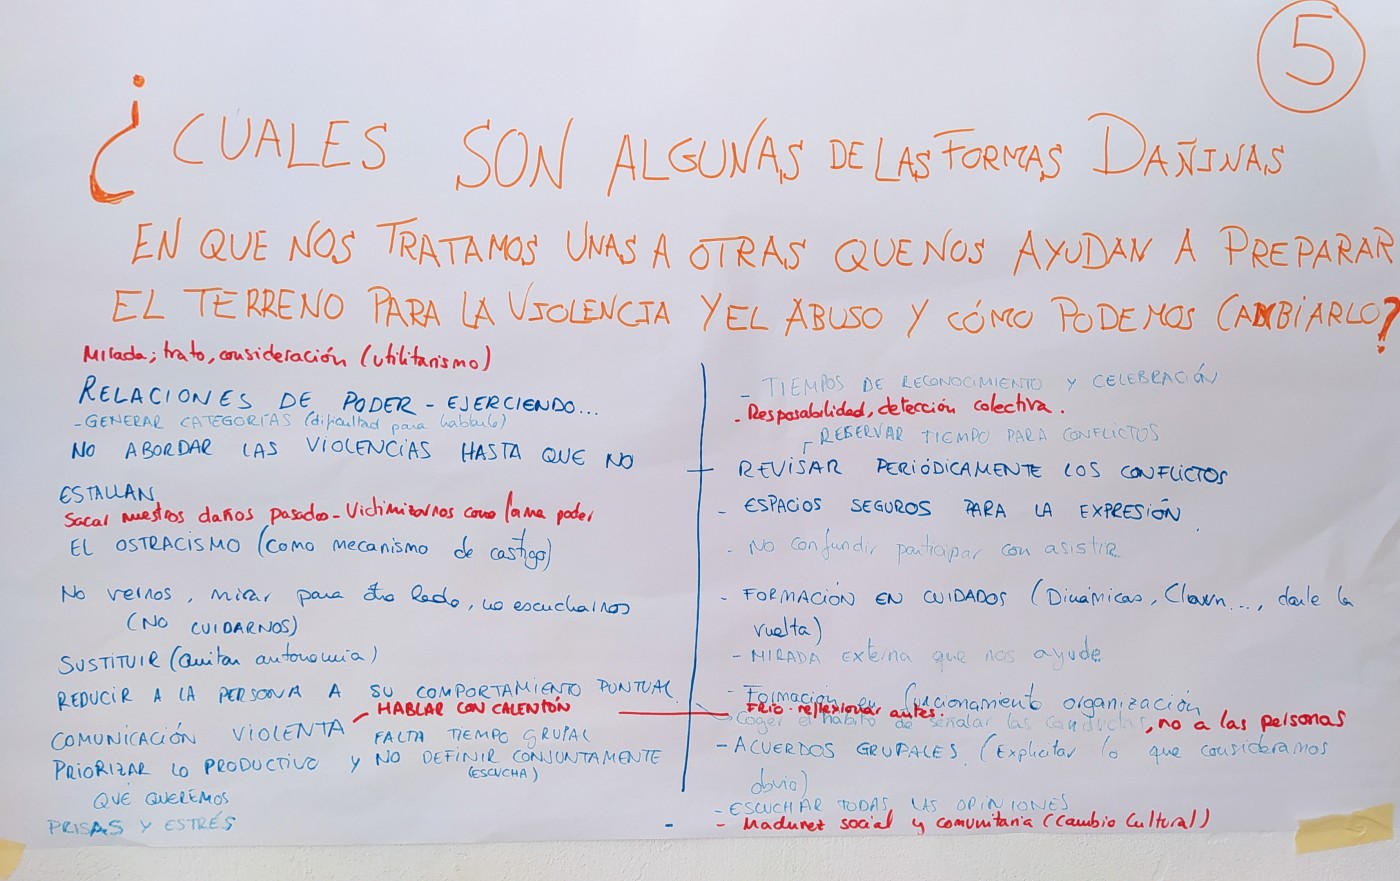 5
¿CUALES SON ALGUNAS DE LAS FORMAS DAÑINAS
EN QUE NOS TRATAMOS UNAS A OTRAS QUE NOS AYUDAN A PREPARAR
EL TERRENO PARA LA VIOLENCIA Y EL ABUSO Y CÓMO PODEMOS CAMBIARLO?
Mirada, trato, consideración (utilitarismo)
RELACIONES DE PODER - EJERCIENDO...
- GENERAR CATEGORÍAS (dificultad para hablarlo)
NO ABORDAR LAS VIOLENCIAS HASTA QUE NO
ESTALLAN
Sacar nuestros daños pasados - Victimizarnos como forma poder
EL OSTRACISMO (como mecanismo de castigo)
No vernos, mirar para otro lado, no escucharnos
(NO CUIDARNOS)
SUSTITUIR (Quitar autonomía)
REDUCIR A LA PERSONA A SU COMPORTAMIENTO PUNTUAL
COMUNICACIÓN VIOLENTA - HABLAR CON CALENTÓN
FALTA TIEMPO GRUPAL
PRIORIZAR LO PRODUCTIVO Y NO DEFINIR CONJUNTAMENTE
(ESCUCHA)
QUÉ QUEREMOS
PRISAS Y ESTRÉS
- TIEMPOS DE RECONOCIMIENTO Y CELEBRACIÓN
- Resposabilidad, detección colectiva.
RESERVAR TIEMPO PARA CONFLICTOS
- REVISAR PERIÓDICAMENTE LOS CONFLICTOS
- ESPACIOS SEGUROS PARA LA EXPRESIÓN.
- No confundir participar con asistir
- FORMACIÓN EN CUIDADOS (Dinámicas, Clown..., darle la
vuelta)
- MIRADA externa que nos ayude
- Formación en funcionamiento organización
FRIO - reflexionar antes.
Coger el hábito de señalar las conductas, no a las personas
- ACUERDOS GRUPALES (Explicitar lo que consideramos
obvio)
- ESCUCHAR TODAS LAS OPINIONES
- Madurez social y comunitaria (Cambio Cultural)